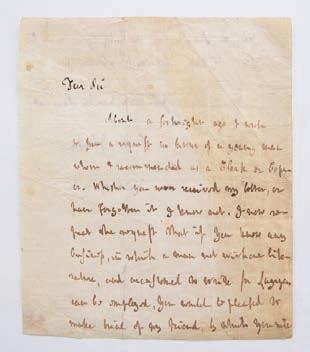 Dear Sir
About a fortnight ago I wrote
to You a request in favour of a young man
whom I recommended as a Clerk or Copi-
er. Whether you never received my letter, or
have forgotten it I know not. I now re-
peat the request that if You know any
business, in which a man not without lite-
rature, and accustomed to write for Lawyers
can be employed, You would be pleased to
make trial of my friend, by which You will